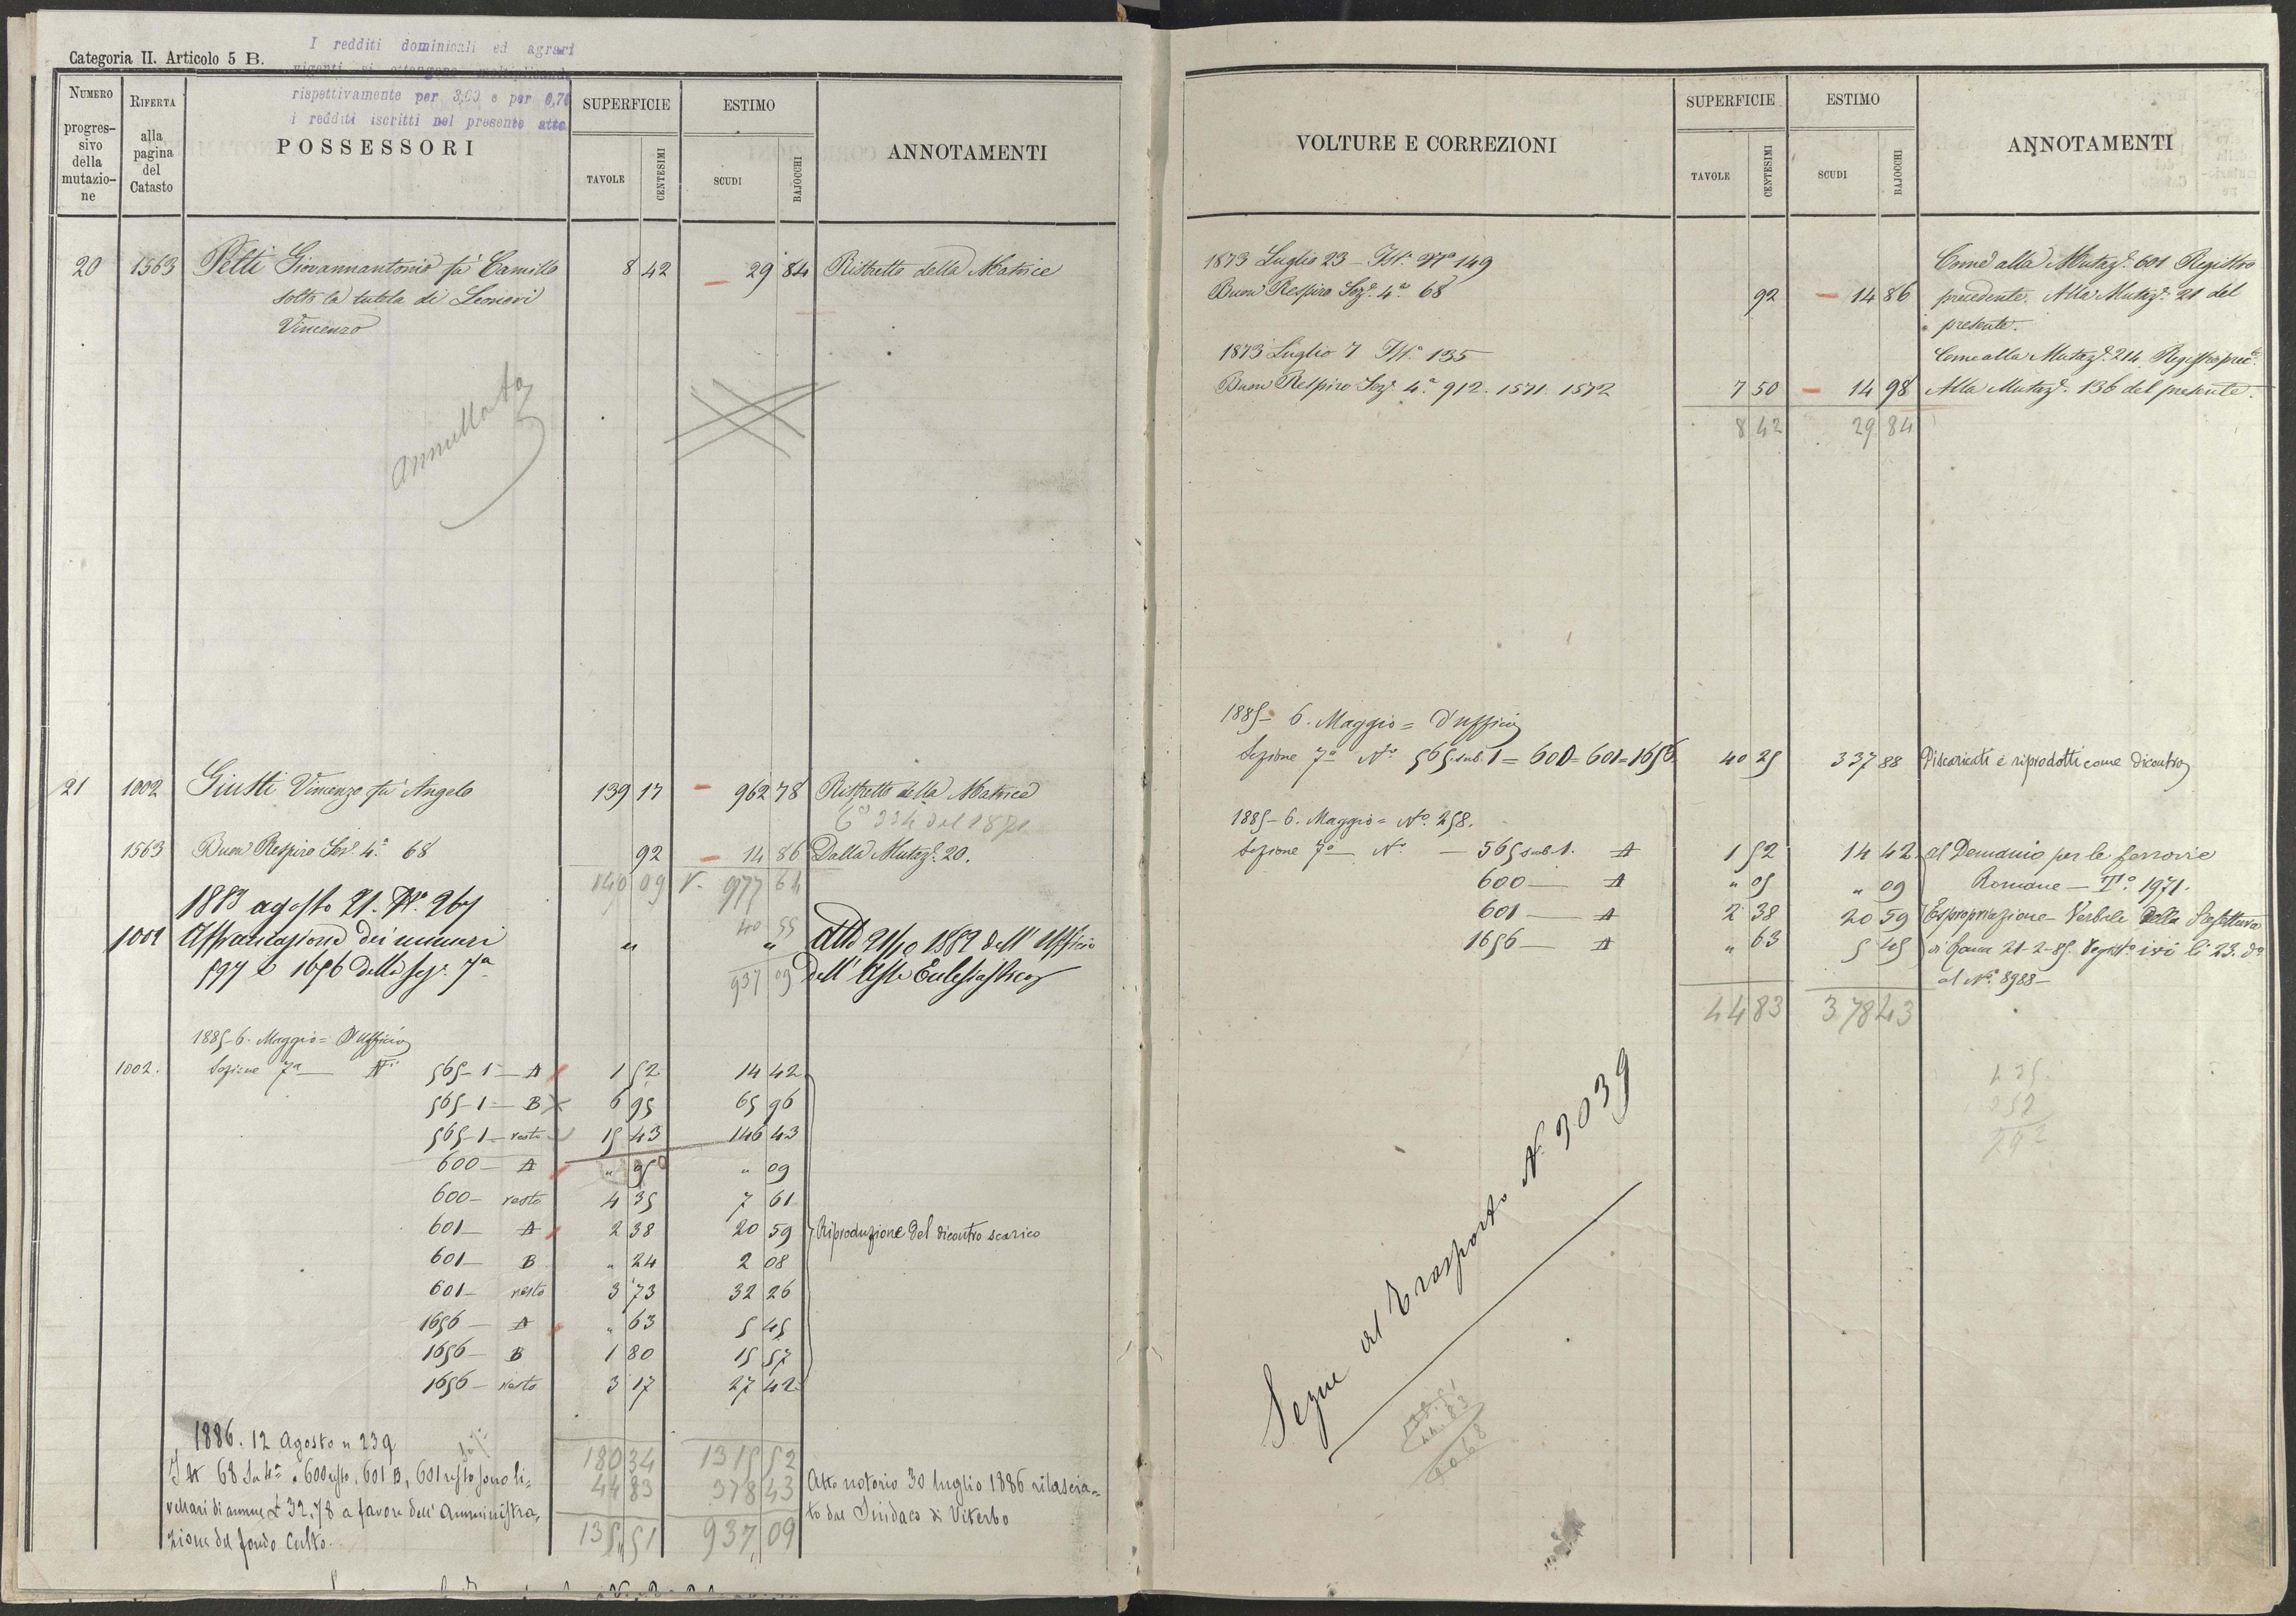 Categoria II. Articolo 5 B.
I redditi dominicali ed agrari
vigenti si ottengono moltiplicando
rispettivamente per 3,60 e per 0,70
i redditi iscritti nel presente atto
NUMERO progres-sivo della mutazio-ne
RIFERTA alla pagina del Catasto
POSSESSORI
SUPERFICIE
TAVOLE CENTESIMI
ESTIMO
SCUDI BAJOCCHI
ANNOTAMENTI
20 1563 Petti Giovannantonio fu Camillo 8 42 29 84 Ristretto della Matrice
sotto la tutela di Leonori
Vincenzo
Annullata
21 1002 Giusti Vincenzo fu Angelo 139 17 962 78 Ristretto della Matrice
1563 Buon Respiro Sez. 4a 68 92 14 86 Dalla Mutaz. 20.
140 09 977 64
1883 agosto 21. No 267
1002 Affrancazione dei numeri " " Atto 21/10 1882 dell' Ufficio
597 e 1656 della sez. 7a dell' Asse Ecclesiastico
40 55
937 09
1885-6. Maggio = D'Ufficio
1002. Sezione 7a Ni 565-1-A 1 52 14 42
565-1-B 6 95 65 96
565-1-resto 15 43 146 43
600-A " 05 " 09
600-resto 4 35 7 61
601-A 2 38 20 59 Riproduzione del dicontro scarico
601-B " 24 2 08
601-resto 3 73 32 26
1656-A " 63 5 45
1656-B 1 80 15 57
1656-resto 3 17 27 42
1886. 12 Agosto n 239
68 600 resto, 601 B, 601 resto sono li=
vellari di annue £ 32.78 a favore dell' Amministra,
zione del fondo Culto.
180 34 1315 52
44 83 378 43 Atto notorio 30 luglio 1886 rilascia=
to dal Sindaco di Viterbo
135,51 937,09
VOLTURE E CORREZIONI
SUPERFICIE
TAVOLE CENTESIMI
ESTIMO
SCUDI BAJOCCHI
ANNOTAMENTI
1873 Luglio 23 - No 149 Come alla Mutaz. 601 Registro
Buon Respiro Sez. 4a 68 92 14 86 precedente. Alla Mutaz. 21 del
presente.
1873 Luglio 7 135 Come alla Mutaz. 214 Registro prec.
Buon Respiro Sez. 4a 912. 1571. 1572 7 50 14 98 Alla Mutaz. 136 del presente.
8 42 29 84
1885- 6. Maggio = D'Ufficio
Sezione 7a No 565.sub.1=600=601=1656 40 25 337 88 Discaricati e riprodotti come dicontro
1885-6. Maggio = No 258.
Sezione 7a No 565 sub 1. A 1 52 14 42 al Demanio per le ferrovie
600 A " 05 " 09 Romane - 1971.
601 A 2 38 20 59 Espropriazione - Verbale della Prefettura
1656 A " 63 5 45 di Roma 21-2-85. Registo ivi li 23. do
al No 8988-
44 83 378 43
Segue al Trasporto N. 3039